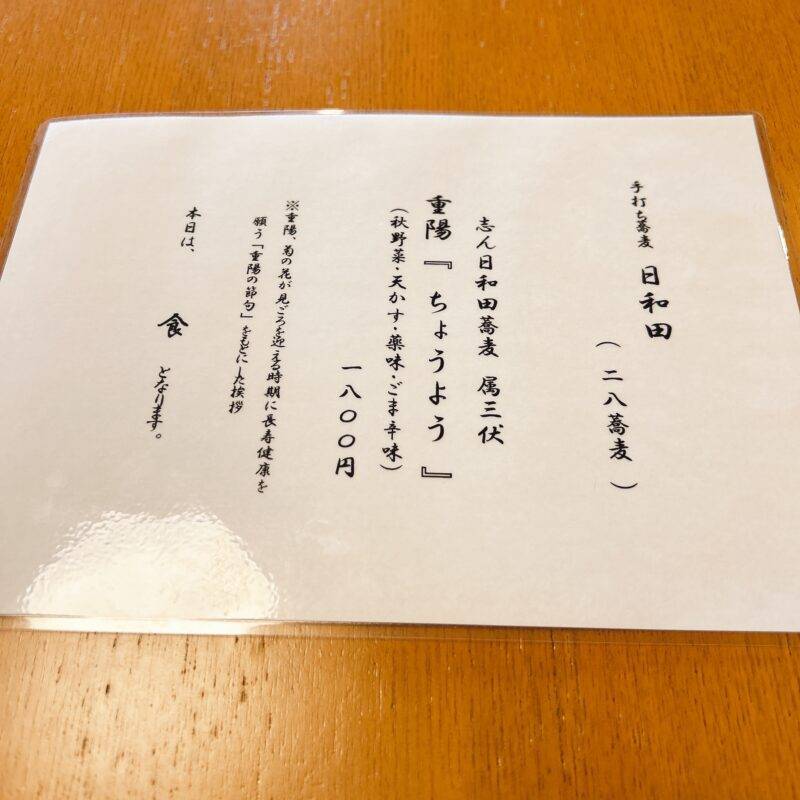 手打ち蕎麦 日和田
（二八蕎麦）
志ん日和田蕎麦 属三伏
重陽『ちょうよう』
（秋野菜・天かす・薬味・ごま辛味）
一八〇〇円
※重陽、菊の花が見ごろを迎える時期に長寿健康を
願う「重陽の節句」をもとにした挨拶
本日は、 食 となります。